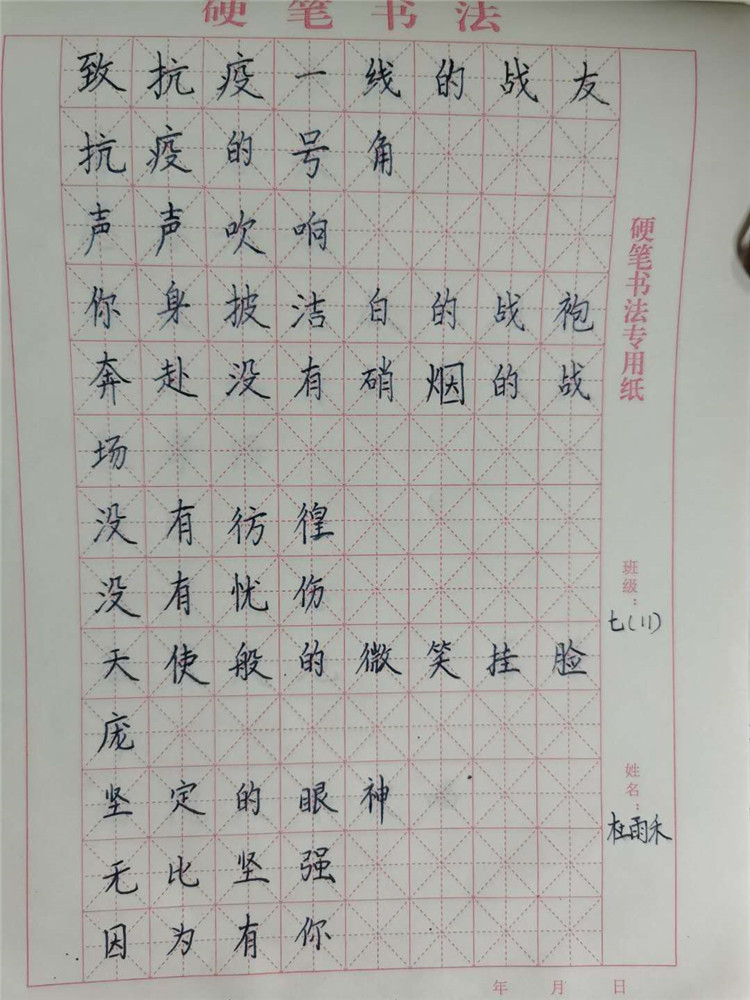 硬笔书法
致抗疫一线的战友
抗疫的号角
声声吹响
你身披洁白的战袍
奔赴没有硝烟的战
场
没有彷徨
没有忧伤
天使般的微笑挂脸
庞
坚定的眼神
无比坚强
因为有你
硬笔书法专用纸
班级：
七(11)
姓名：
杜雨禾
年 月 日